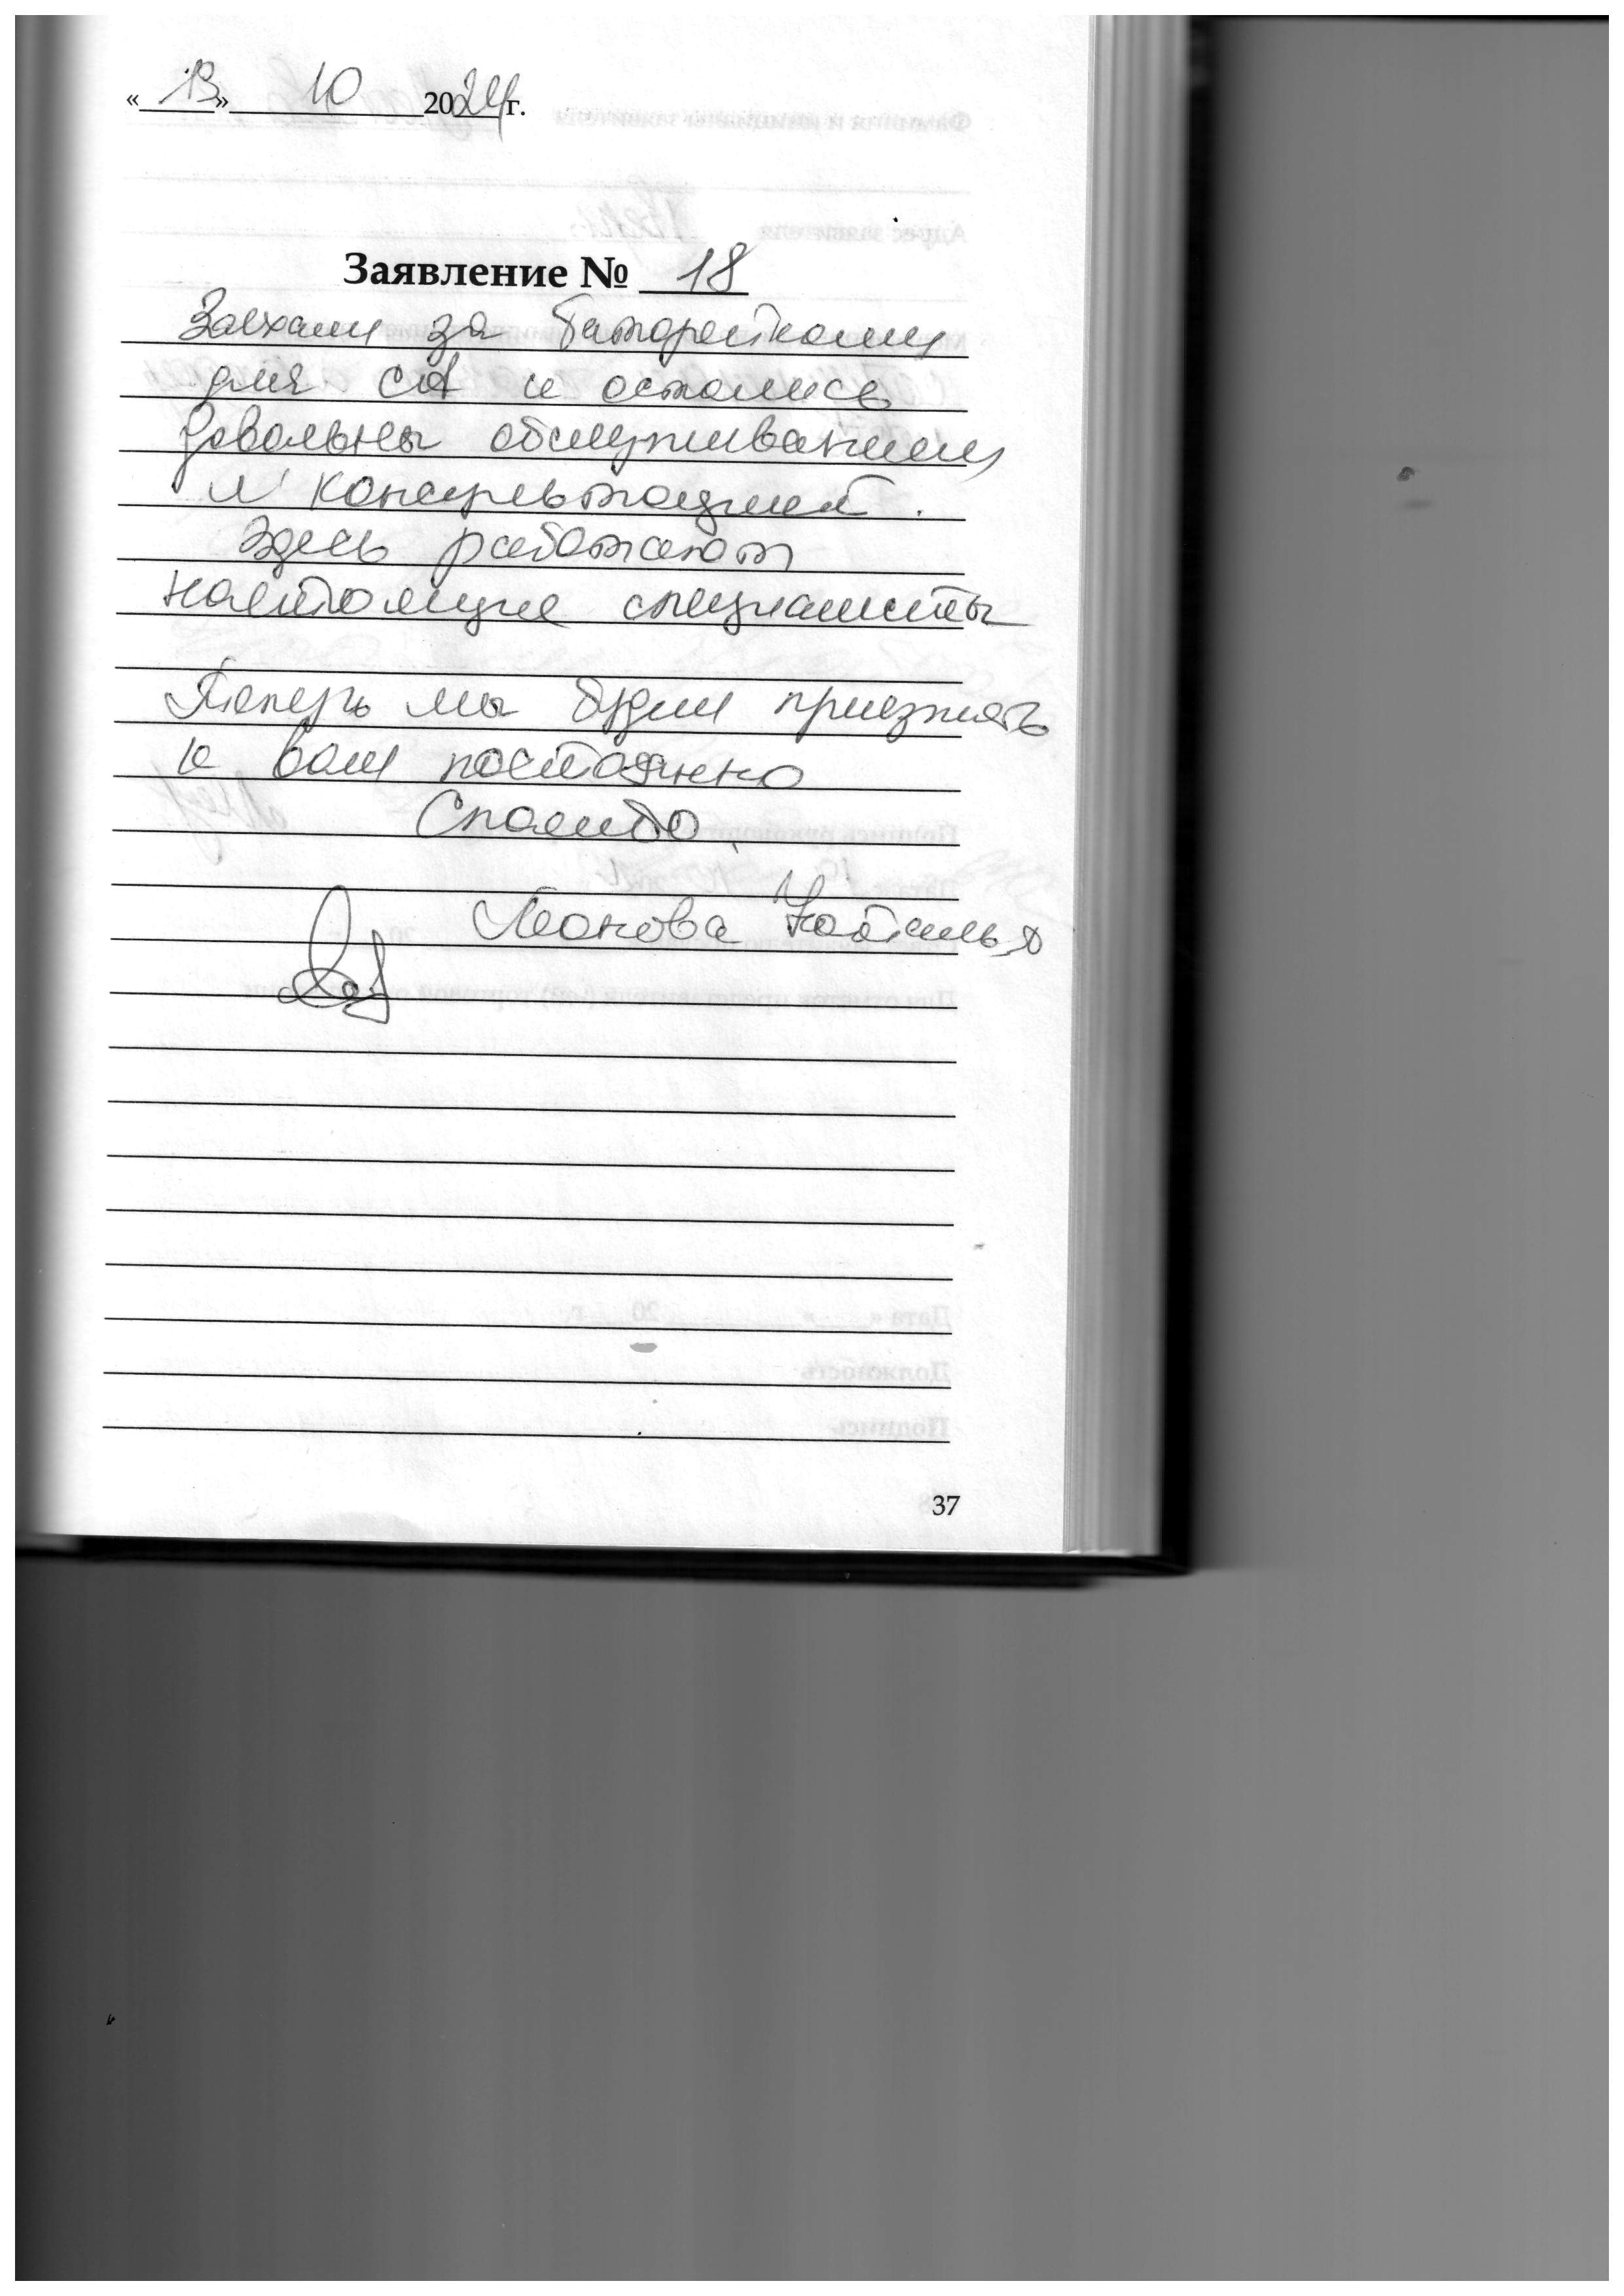 «13» 10 2024г.
Заявление № 18
Заехали за батарейками
для СА и остались
довольны обслуживанием
и консультацией.
Здесь работают
настоящие специалисты
Теперь мы будем приезжать
к вам постоянно
Спасибо.
Леонова Наталья
37